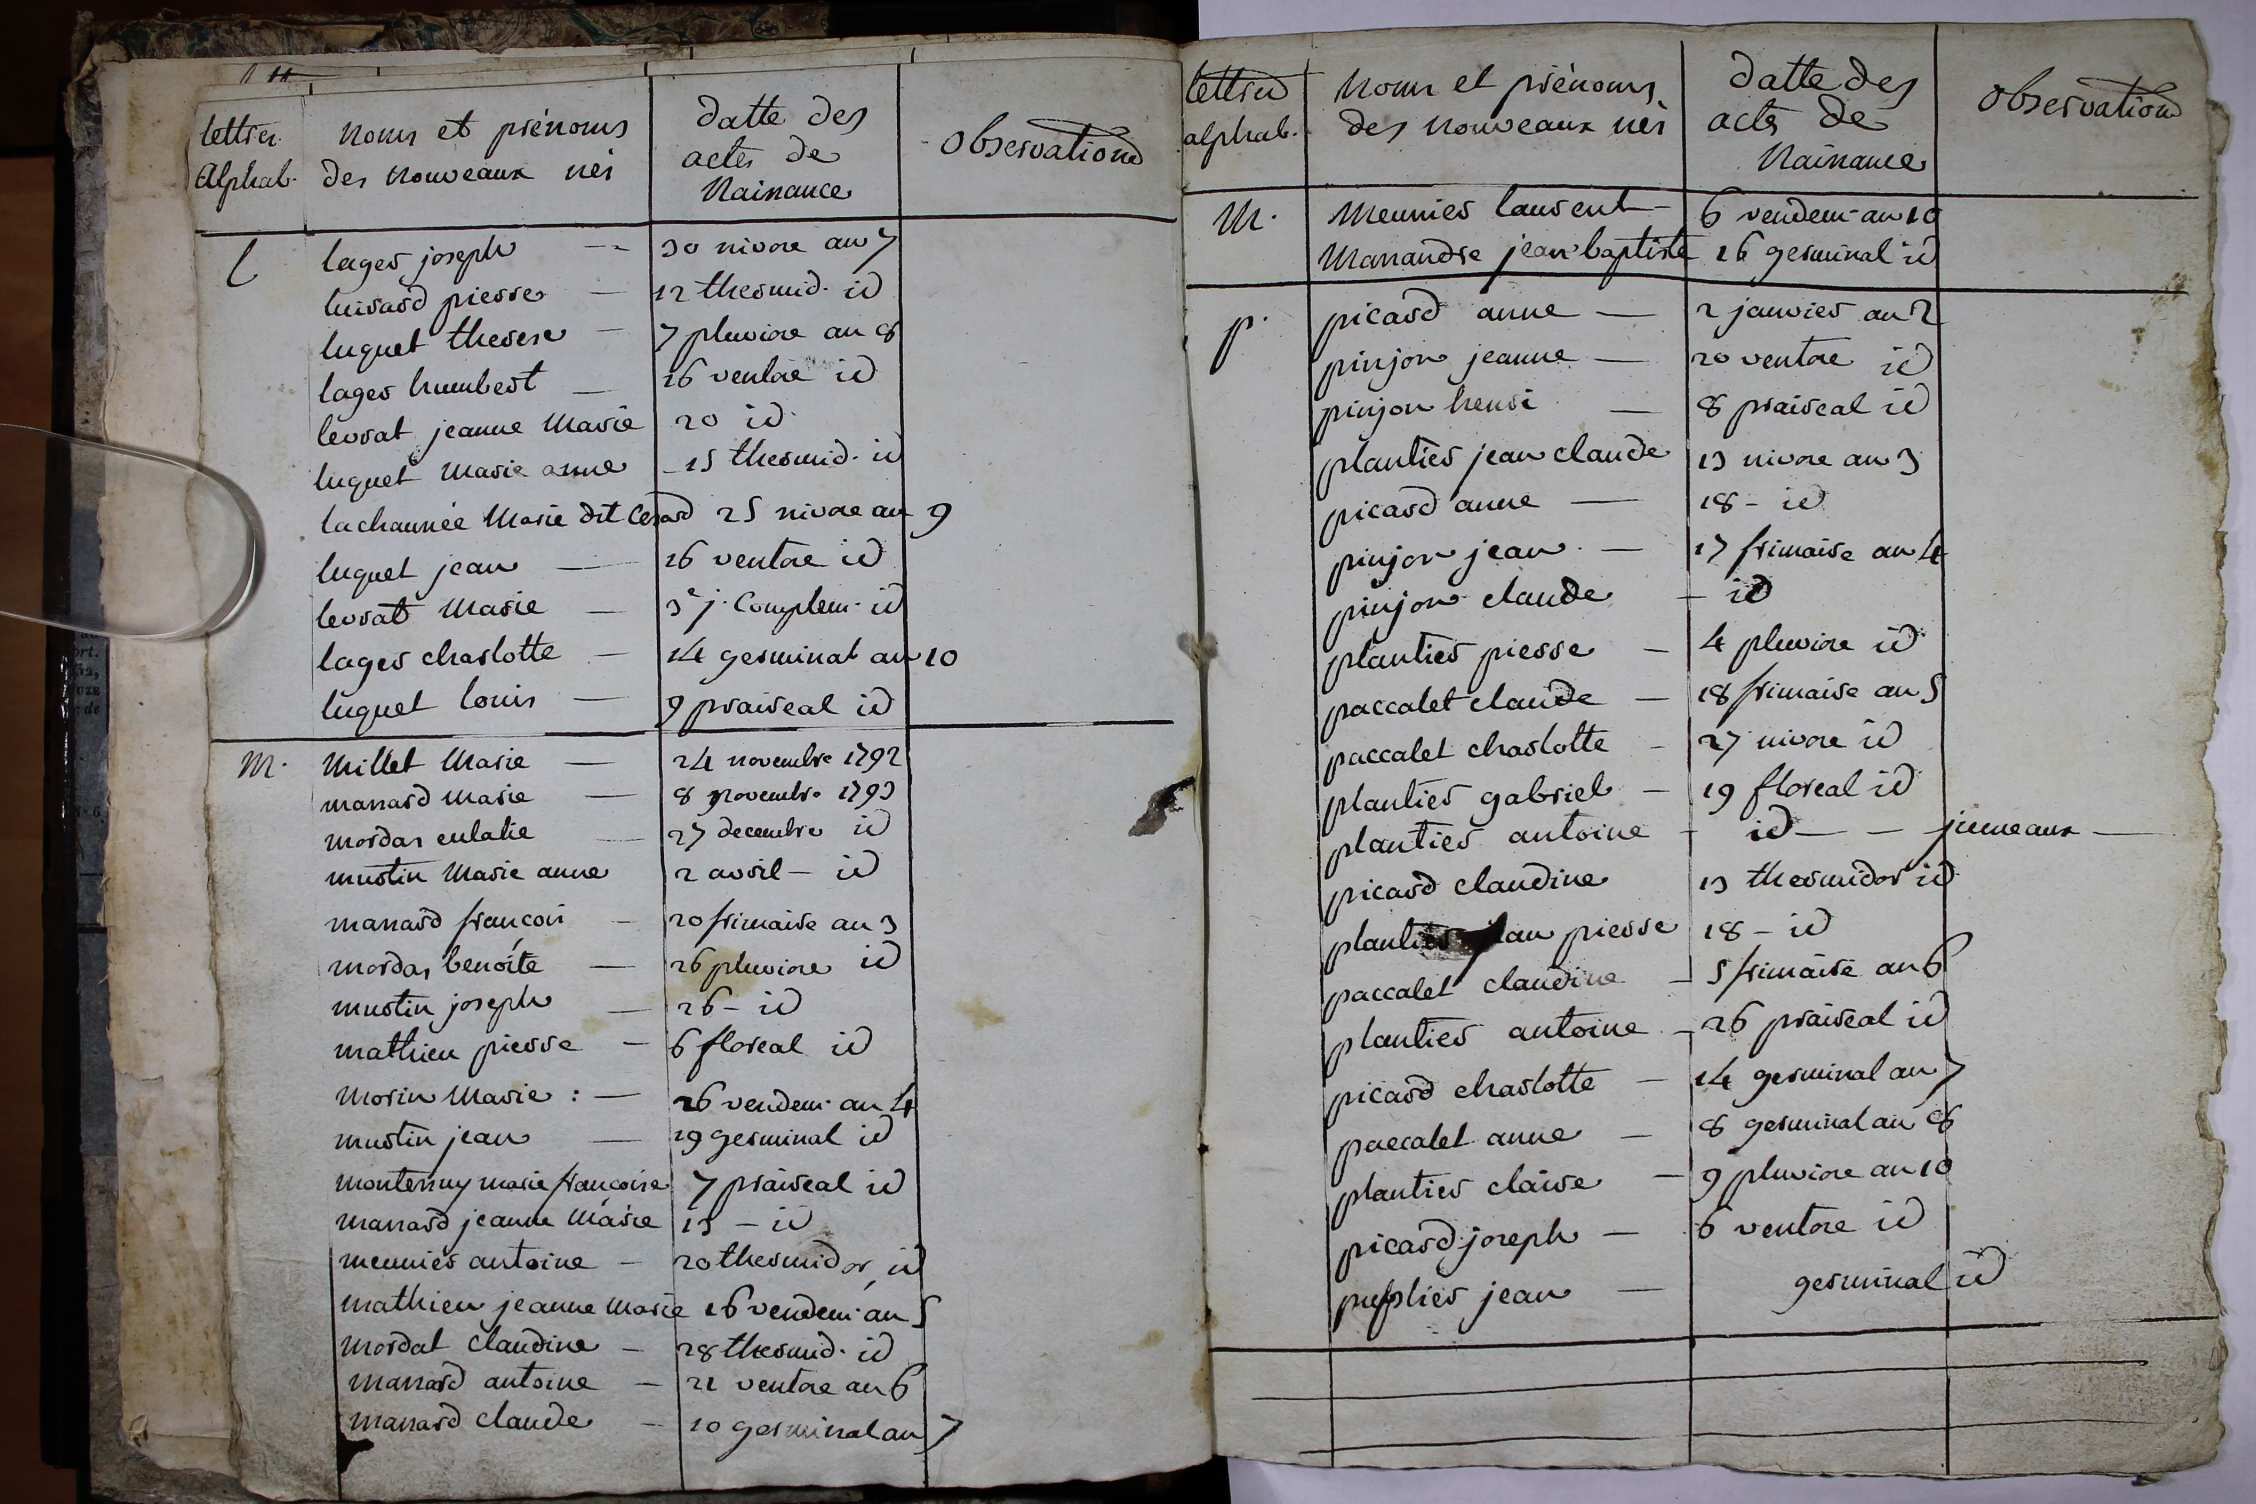 lettres
Alphab.
noms et prénoms
des nouveaux nés
datte des
actes de
Naissance
observations
l lager joseph -- 30 nivose an 7
luisard pierre — 12 thermid. id
luquet therese — 7 pluviose an 8
lager humbert — 26 ventose id
levrat jeanne Marie 20 id
luquet Marie anne - 15 thermid. id
lachaunée Marie dit Cesard 25 nivose an 9
luquet jean — 26 ventose id
levrat Marie — 3e j. Complem. id
lager charlotte — 14 germinal an 10
luquet louis — 9 prairéal id
M. Millet Marie — 24 novembre 1792
massard Marie — 8 novembre 1793
mordas eulalie — 27 decembre id
mustin Marie anne 2 avril - id
massard françois - 20 frimaire an 3
mordas benoite — 26 pluviose id
mustin joseph — 26 - id
mathieu pierre — 6 floreal id
Morin Marie : — 26 vendem. an 4
mustin jean — 29 germinal id
monternuy marie françoise 7 prairéal id
massard jeanne Marie 15 - id
meunier antoine — 20 thermidor id
mathieu jeanne Marie 26 vendem. an 5
Mordat Claudine — 28 thermid. id
massard antoine — 21 ventose an 6
massard claude — 10 germinal an 7
lettres
alphab.
Noms et prénoms
des nouveaux nés
datte des
actes de
Naissance
observations
M. Meunier laurent - 6 vendem. an 10
Massandre jean baptiste 26 germinal id
p. picard anne — 2 janvier an 2
pinjon jeanne — 20 ventose id
pinjon henri — 8 prairéal id
plantier jean claude 13 nivose an 3
picard anne — 18 - id
pinjon jean. — 17 frimaire an 4
pinjon claude — id
plantier pierre — 4 pluviose id
paccalet claude — 18 frimaire an 5
paccalet charlotte - 27 nivose id
plantier gabriel — 19 floreal id
plantier antoine - id — — jumeaux —
picard claudine 13 thermidor id
plantier jean pierre 18 - id
paccalet claudine - 5 frimaire an 6
plantier antoine - 26 prairéal id
picard charlotte — 14 germinal an 7
paccalet anne — 8 germinal an 8
plantier claire — 9 pluviose an 10
picard joseph — 6 ventose id
jean — germinal id